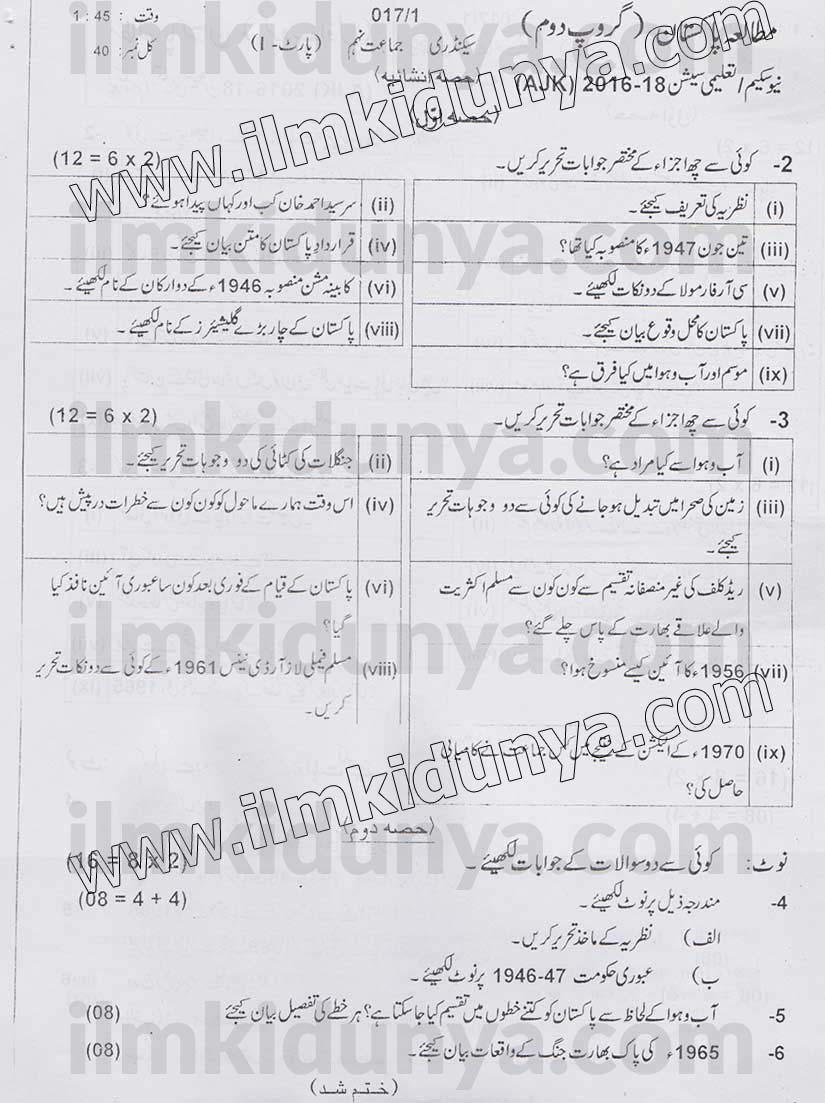 مطالعہ پاکستان (گروپ دوم) 017/1 وقت : 1 : 45
سیکنڈری جماعت نہم (پارٹ - I) کل نمبر: 40
نیو سکیم / تعلیمی سیشن 18-2016 (AJK) (حصہ انشائیہ)
(حصہ اوّل)
2- کوئی سے چھ اجزاء کے مختصر جوابات تحریر کریں۔ (12 = 6 x 2)
(i) نظریہ کی تعریف کیجئے۔
(ii) سر سید احمد خان کب اور کہاں پیدا ہوئے؟
(iii) تین جون 1947ء کا منصوبہ کیا تھا؟
(iv) قرارداد پاکستان کا متن بیان کیجئے۔
(v) سی آر فارمولا کے دو نکات لکھیئے۔
(vi) کابینہ مشن منصوبہ 1946ء کے دو ارکان کے نام لکھیئے۔
(vii) پاکستان کا محل وقوع بیان کیجئے۔
(viii) پاکستان کے چار بڑے گلیشیئرز کے نام لکھیئے۔
(ix) موسم اور آب و ہوا میں کیا فرق ہے؟
3- کوئی سے چھ اجزاء کے مختصر جوابات تحریر کریں۔ (12 = 6 x 2)
(i) آب و ہوا سے کیا مراد ہے؟
(ii) جنگلات کی کٹائی کی دو وجوہات تحریر کیجئے۔
(iii) زمین کی صحرا میں تبدیل ہو جانے کی کوئی سے دو وجوہات تحریر
کیجئے۔
(iv) اس وقت ہمارے ماحول کو کون کون سے خطرات درپیش ہیں؟
(v) ریڈ کلف کی غیر منصفانہ تقسیم سے کون کون سے مسلم اکثریت
والے علاقے بھارت کے پاس چلے گئے؟
(vi) پاکستان کے قیام کے فوری بعد کون سا عبوری آئین نافذ کیا
گیا؟
(vii) 1956ء کا آئین کیسے منسوخ ہوا؟
(viii) مسلم فیملی لاز آرڈی نینس 1961ء کے کوئی سے دو نکات تحریر
کریں۔
(ix) 1970ء کے الیکشن کے نتیجے میں کس جماعت نے کامیابی
حاصل کی؟
(حصہ دوم)
نوٹ: کوئی سے دو سوالات کے جوابات لکھیئے۔ (16 = 8 x 2)
4- مندرجہ ذیل پر نوٹ لکھیئے۔ (08 = 4 + 4)
الف) نظریہ کے ماخذ تحریر کریں۔
ب) عبوری حکومت 47-1946 پر نوٹ لکھیئے۔
5- آب و ہوا کے لحاظ سے پاکستان کو کتنے خطوں میں تقسیم کیا جا سکتا ہے؟ ہر خطے کی تفصیل بیان کیجئے (08)
6- 1965ء کی پاک بھارت جنگ کے واقعات بیان کیجئے۔ (08)
(ختم شد)
www.ilmkidunya.com
www.ilmkidunya.com
ilmkidunya.com
ilmkidunya.com
ilmkidunya.com
ilmkidunya.com
ilmkidunya.com
ilmkidunya.com